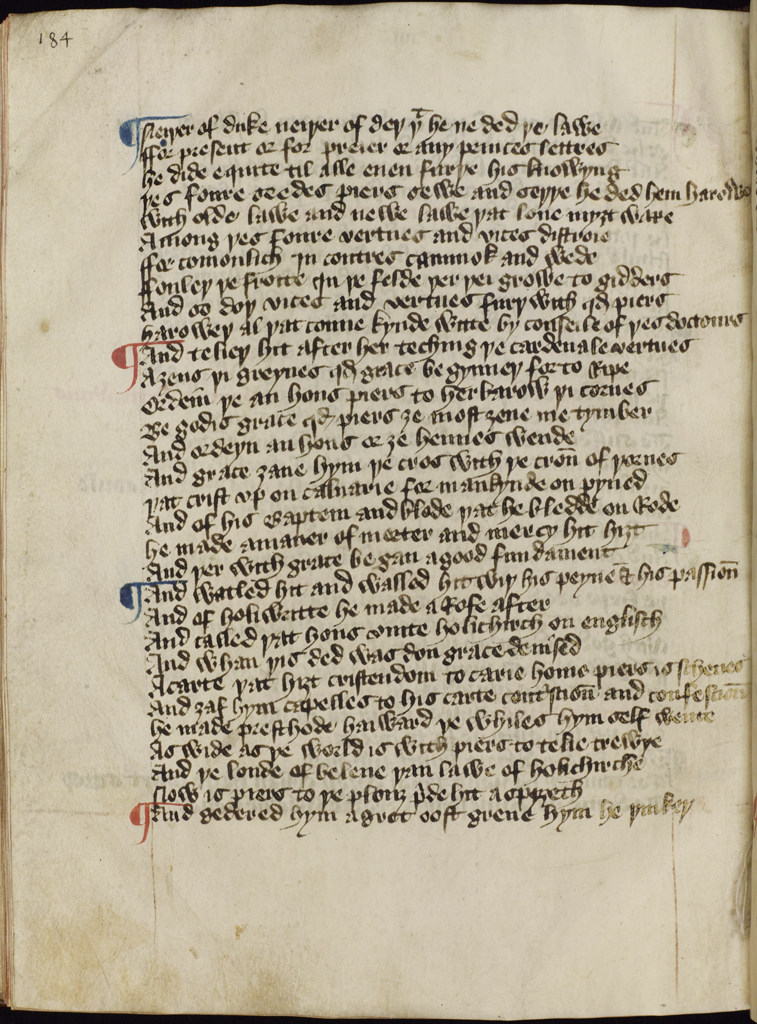 184
¶ Neiyer of duke neiyer of dey yt he ne ded ye lawe
ffor present or for preier or any princes lettres
he dide equite til alle euen furye his knowyng
yes foure seedes piers sewe and seyye he ded hem harowe
with olde lawe and newe lawe yat loue myȝt waxe
Among yes foure vertues and vices distroie
ffor comonlich in contres cammok and wede
ffouley ye froite in ye felde yer yei growe to gidders
And so doy vices and vertues fury with qd piers
harowey al yat conne kynde witte by conseile of yes doctours
¶ And teliey hit after her teching ye cardenale vertues
Aȝens yi greynes qd grace begynney for to Ripe
Ordein ye an hous piers to herbarow yi cornes
Be godis grace qd piers ȝe most ȝeue me tymber
And ordeyn an hous or ȝe hennes wende
And grace ȝaue hym ye cros with ye cron of yornes
yat crist vp on caluarie for mankynde on pyned
And of his Baptem and blode yat he bledde on Rode
he made a maner of morter and mercy hit hiȝt
And yer with grace be gan a good fundament
¶ And watled hit and walled hit wiy his peyne & his passion
And of holi writte he made a Rofe after
And called yat hous vnite holichirch on englisch
And whan yis ded was don grace deuised
A carte yat hiȝt cristendom to carie home piers is scheues
And ȝaf hym capelles to his carte contrision and confession
he made presthode haiward ye whiles hym self wente
As wide as ye world is with piers to telie trewye
And ye londe of beleue yan lawe of holichirche
Now is piers to ye plouȝ pride hit aspyeth
¶ And gedered hym a gret oost greue hym he yinkey